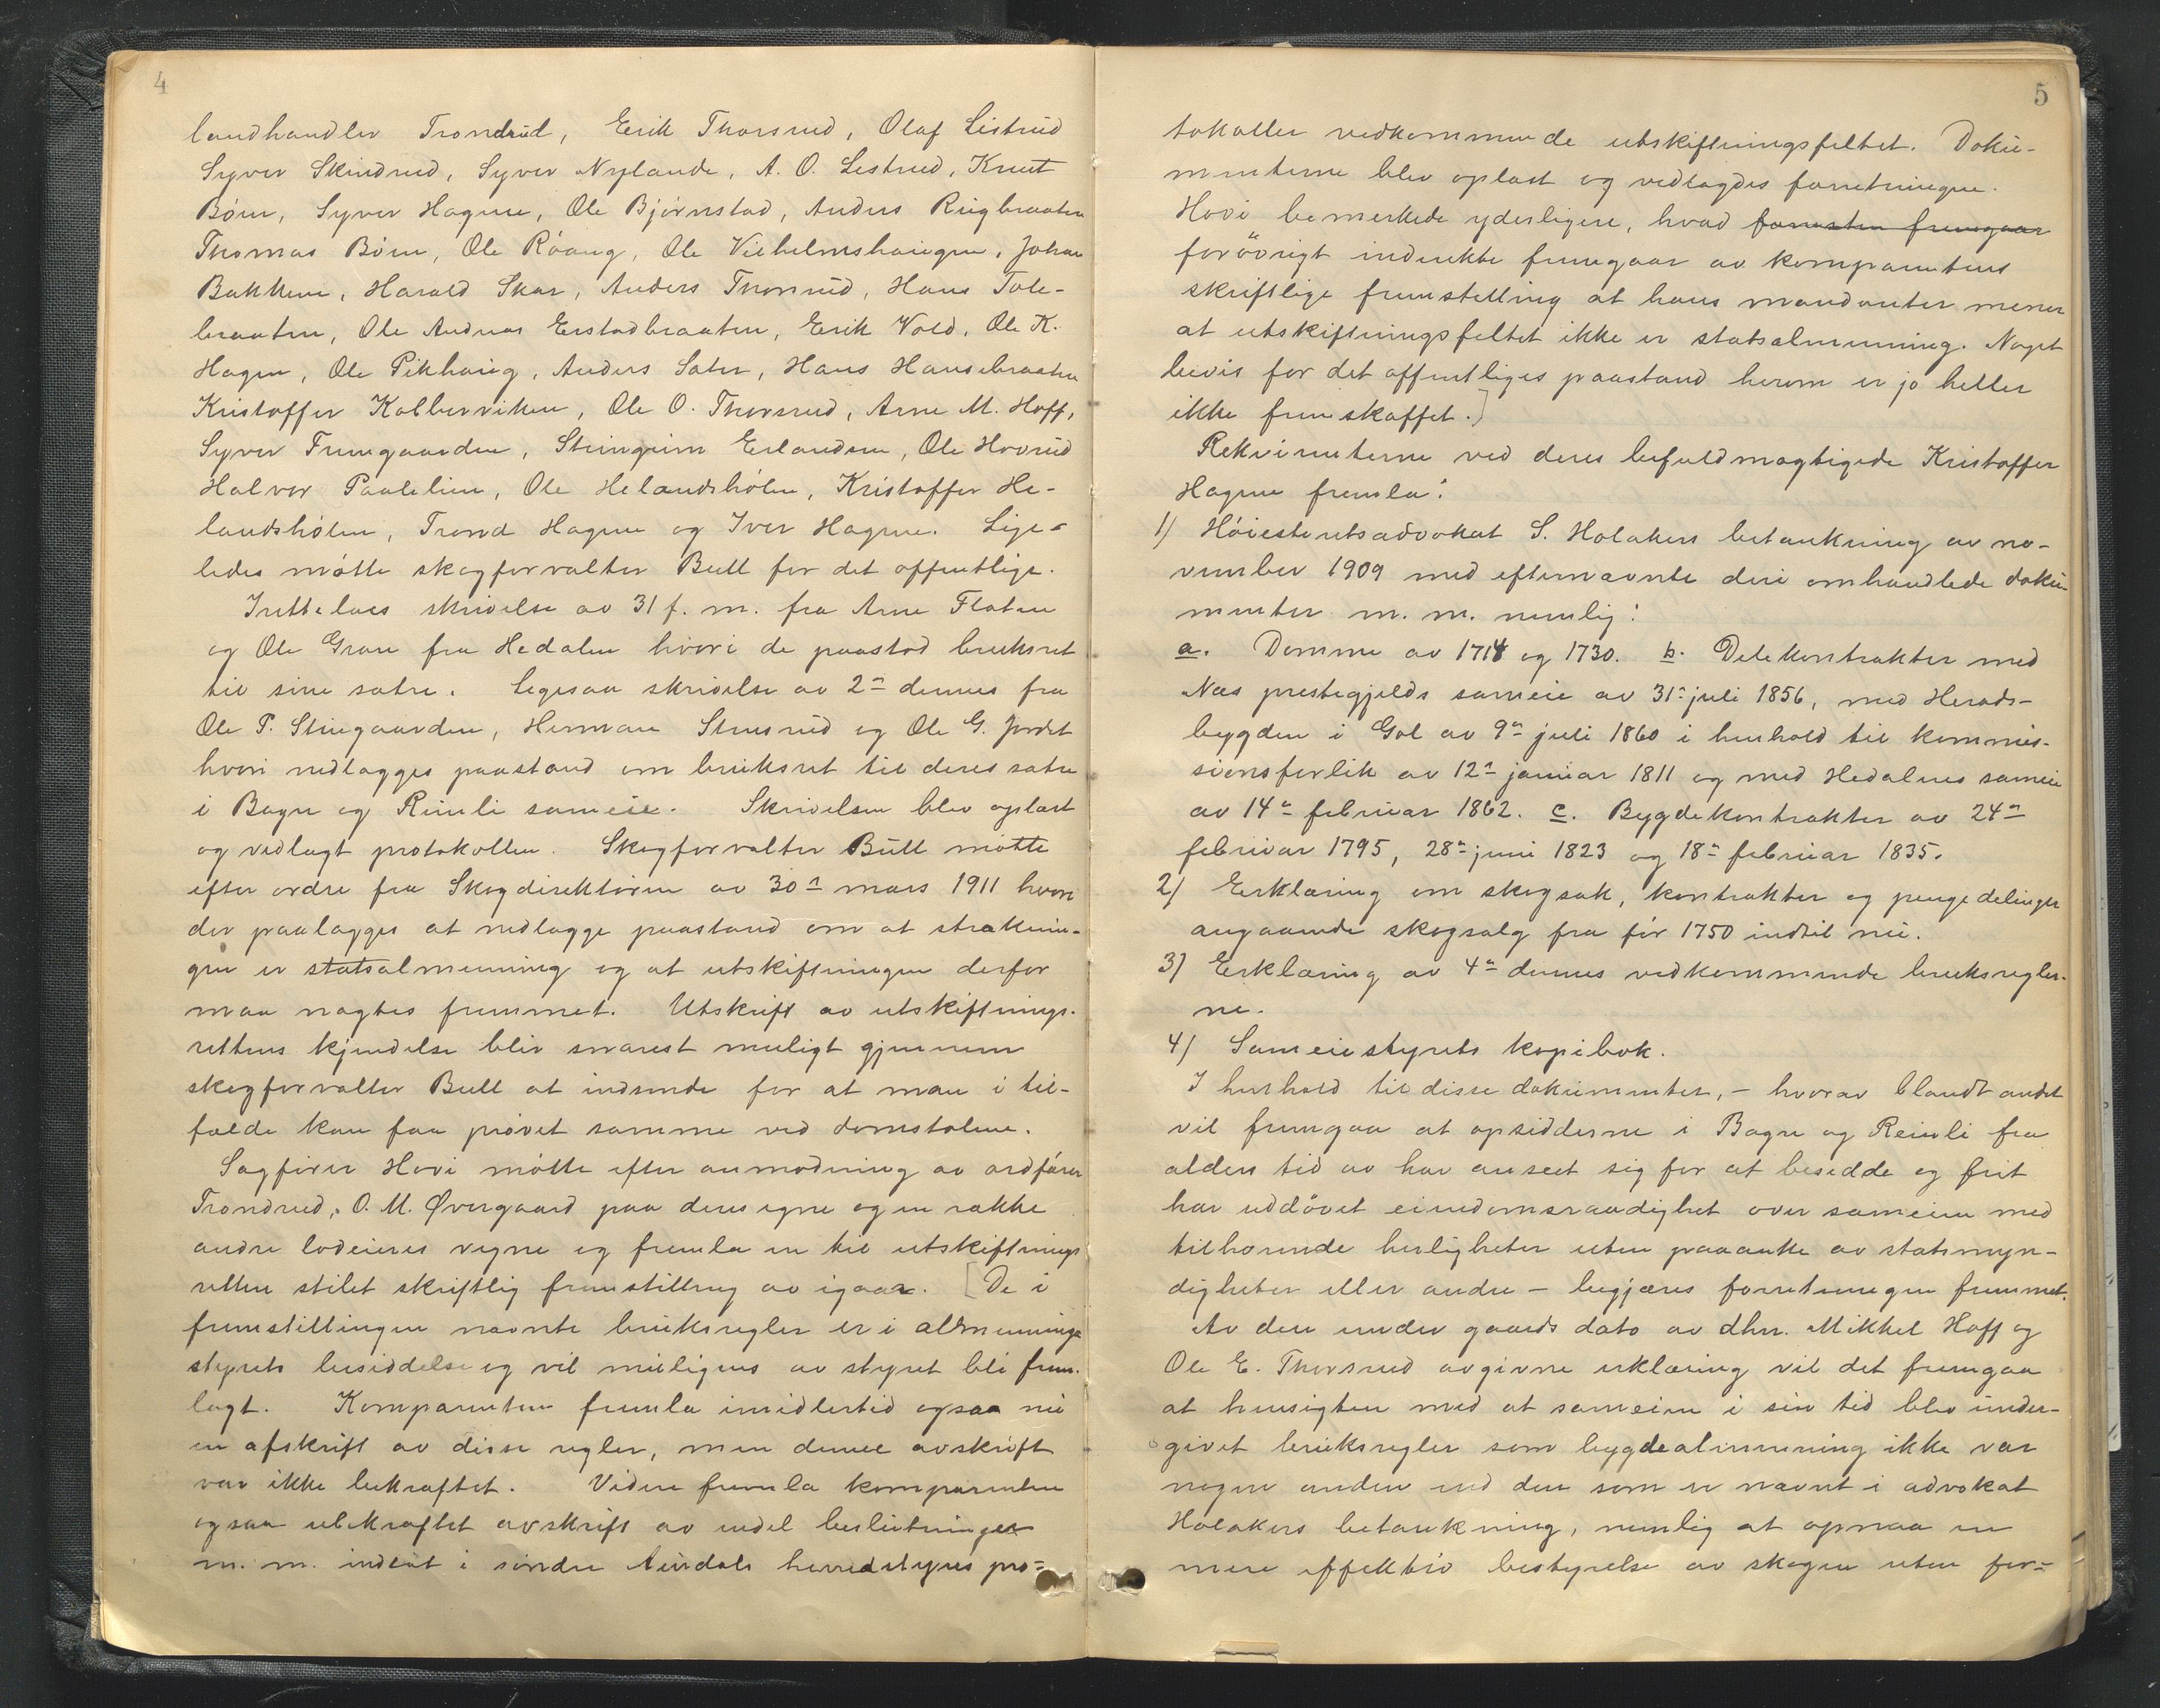 4
landhandler Trondrud, Erik Thorsrud, Olaf Listrud
Syver Skindrud, Syver Nylande, A. O. Lestrud, Knut
Bøen, Syver Hagene, Ole Bjørnstad, Anders Rugbraaten
Thomas Bøen, Ole Røang, Ole Vilhelmshaugen, Johan
Bakkene, Harald Skar, Anders Thonrud, Hans Tole-
braaten, Ole Andreas Erstadbraaten, Erik Vold, Ole K.
Hagen, Ole Pikhaug, Anders Sæter, Hans Hansebraaten
Kristoffer Kolberviken, Ole O. Thorsrud, Arne M. Hoff,
Syver Fremgaarden, Steingrim Erlandsen, Ole Hovrud
Halvor Paalelien, Ole Helandshølen, Kristoffer He-
landshølen, Trond Hagene og Iver Hagene. Lige-
ledes møtte skogforvalter Bull for det offentlige.
Irettelaes skrivelse av 31 f. m. fra Arne Flaten
og Ole Gran fra Hedalen hvori de paastod bruksret
til sine sætre. Ligesaa skrivelse av 2en dennes fra
Ole P. Stengaarden, Herman Stensrud og Ole G. Jordet
hvori nedlægges paastand om bruksret til deres sætre
i Bagn og Reinli sameie. Skrivelsen blev oplæst
og vedlagt protokollen. Skogforvalter Bull møtte
efter ordre fra Skogdirektøren av 30te mars 1911 hvori
der paalægges at nedlægge paastand om at stræknin-
gen er statsalmenning og at utskiftningen derfor
maa nægtes fremmet. Utskrift av utskiftnings-
rettens kjendelse blir snarest muligt gjennem
skogforvalter Bull at indsende for at man i til-
fælde kan faa prøvet samme ved domstolene.
Sagfører Hovi møtte efter anmodning av ordfører
Trondrud, O. M. Øvergaard paa deres egne og en række
andre lodeieres vegne og fremla en til utskiftnings
retten stilet skriftlig fremstilling av igaar. [De i
fremstillingen nævnte bruksregler er i almennings
styrets besiddelse og vil muligens av styret bli frem-
lagt. Komparenten fremla imidlertid ogsaa nu
en afskrift av disse regler, men denne avskrift
var ikke bekræftet. Videre fremla komparenten
ogsaa ubekræftet avskrift av endel beslutninger
m. m. indtat i søndre Aurdals herredstyres pro-
5
tokoller vedkommende utskiftningsfeltet. Doku-
menterne blev oplæst og vedlagdes forretningen.
Hovi bemerkede yderligere, hvad foruten fremgaar
forøvrigt indirekte fremgaar av komparentens
skriftlige fremstelling at hans mandanter mener
at utskiftningsfeltet ikke er statsalmenning. Noget
bevis for det offentliges paastand herom er jo heller
ikke fremskaffet.]
Rekvirenterne ved deres befuldmægtigede Kristoffer
Hagene fremla:
1) Høiesteretsadvokat S. Holakers betænkning av no-
vember 1909 med efternævnte deri omhandlede doku-
menter m. m. nemlig:
a. Domme av 1714 og 1730. b. Delekontrakter med
Næs prestegjelds sameie av 31te juli 1856, med Herads-
bygden i Gol av 9de juli 1860 i henhold til kommis-
sionsforlik av 12te januar 1811 og med Hedalens sameie
av 14de februar 1862. c. Bygdekontrakter av 24de
februar 1795, 28de juni 1823 og 18de februar 1835.
2) Erklæring om skogsak, kontrakter og pengedelinger
angaaende skogsalg fra før 1750 indtil nu.
3) Erklæring av 4de dennes vedkommende bruksregler-
ne.
4) Sameiestyrets kopibok.
I henhold til disse dokumenter, – hvorav blandt andet
vil fremgaa at opsidderne i Bagn og Reinli fra
alders tid av har anseet sig for at besidde og frit
har uddøvet eiendomsraadighet over sameien med
tilhørende herligheter uten paaanke av statsmyn-
digheter eller andre – begjæres forretningen fremmet.
Av den under gaards dato av dhrr. Mikkel Hoff og
Ole E. Thorsrud avgivne erklæring vil det fremgaa
at hensigten med at sameien i sin tid blev under-
givet bruksregler som bygdealmenning ikke var
nogen anden end den som er nævnt i advokat
Holakers betænkning, nemlig at opnaa en
mere effektiv bestyrelse av skogen uten for-